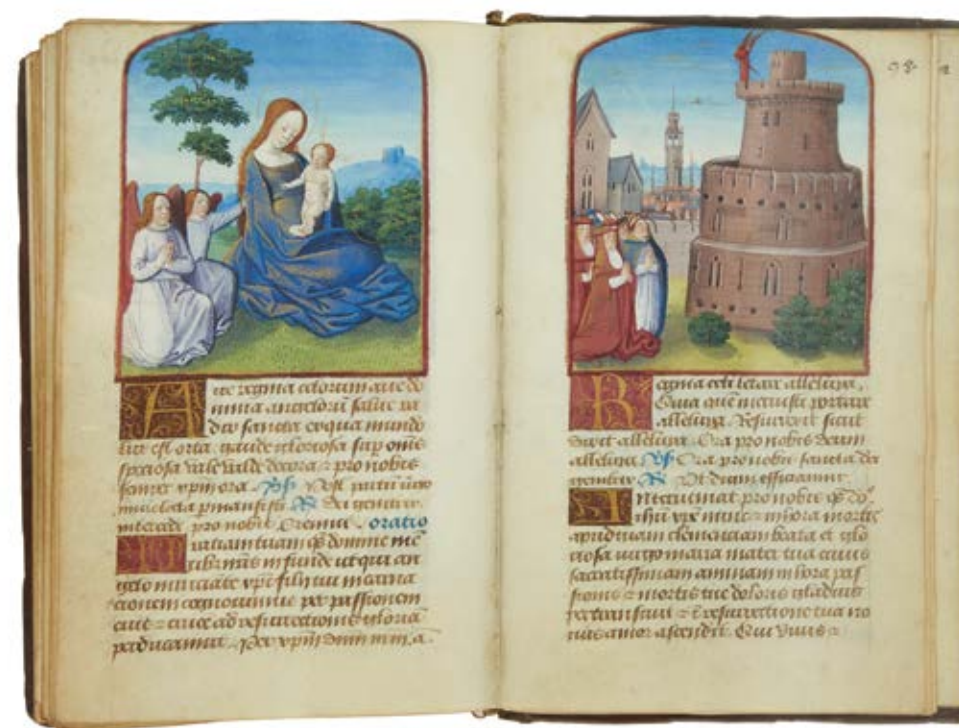 Ave regina celorum ave do
mina angelorū salve ra
dix sancta ex qua mundo
lux est orta gaude gloriosa sup om̄s
speciosa vale valde decora et pro nobis
semper xp̄m ora Vs̄ Post partū virgo
inviolata p̄mansisti R̄ dei genitrix
intercede pro nobis Oremus oratio
Gratiam tuam q̄s domine mē
tibus nr̄is infunde ut qui an
gelo nunciāte xp̄i filii tui incarna
cionem cognovimus per passionem
eius et crucē ad resurrectionis gloriā
perducamur Per xp̄m dnm nrm a
98
Regina celi letare alleluya
Quia quē meruisti portare
alleluya Resurrexit sicut
dixit alleluya Ora pro nobis deum
alleluya Vs̄ Ora pro nobis sancta dei
genitrix R̄ Ut digni efficiamur
Interveniat pro nobis q̄s dn̄e
ihū xp̄e nunc et in hora mortis
apud tuam clemenciam beata et glo
riosa virgo maria mater tua cuius
sacratissimam animam in hora pas
sionis et mortis tue doloris gladius
pertransivit et ī resurrectione tua
Qui vivis et